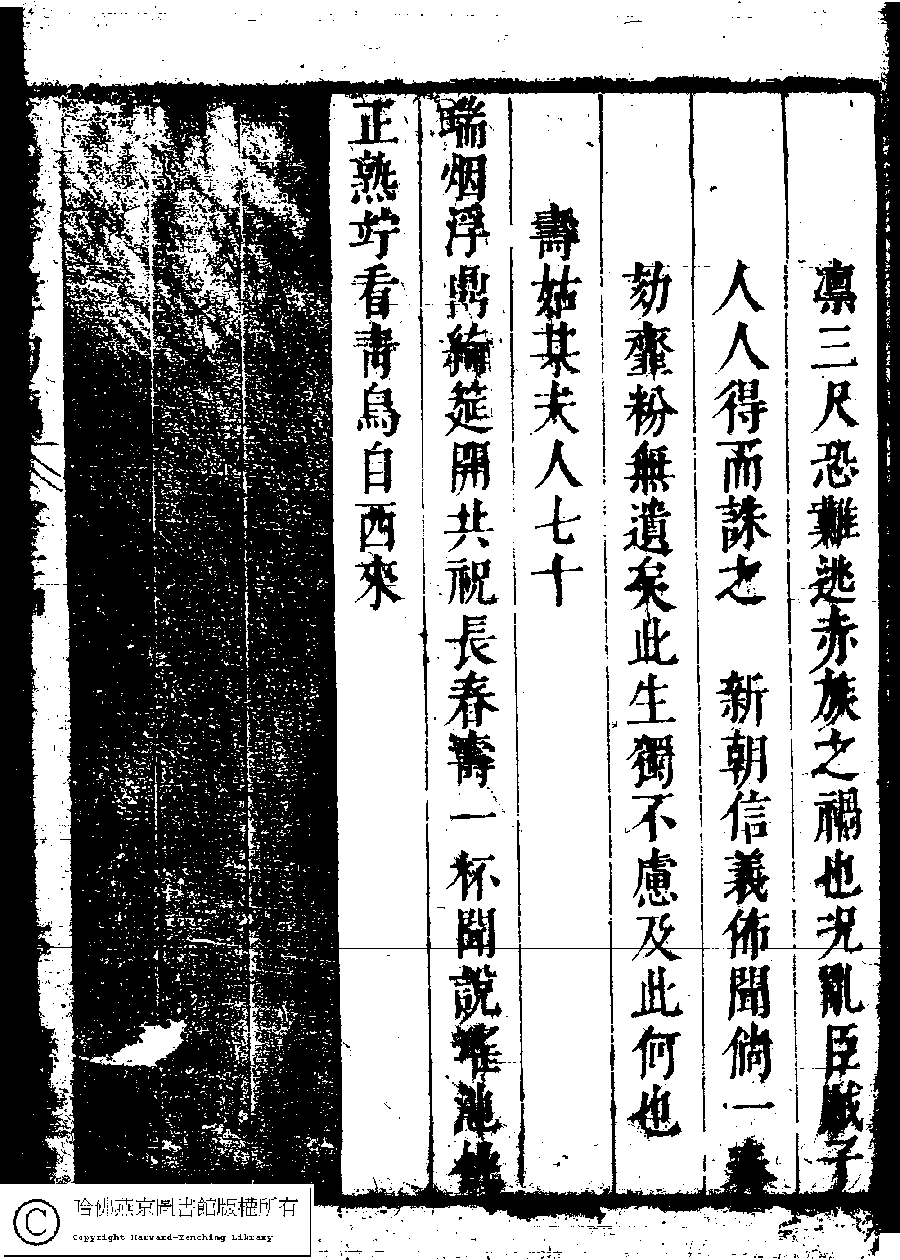 凛三尺恐難逃赤族之禍也况亂臣賊子
人人得而誅之　新朝信義佈聞倘一
劾虀粉無遺矣此生獨不慮及此何也
壽姑某夫人七十
瑞烟浮鼎綺筵開共祝長春壽一杯聞說瑤池桃
正熟竚看青鳥自西來
哈佛燕京圖書館版權所有
Copyright Harvard-Yenching Library